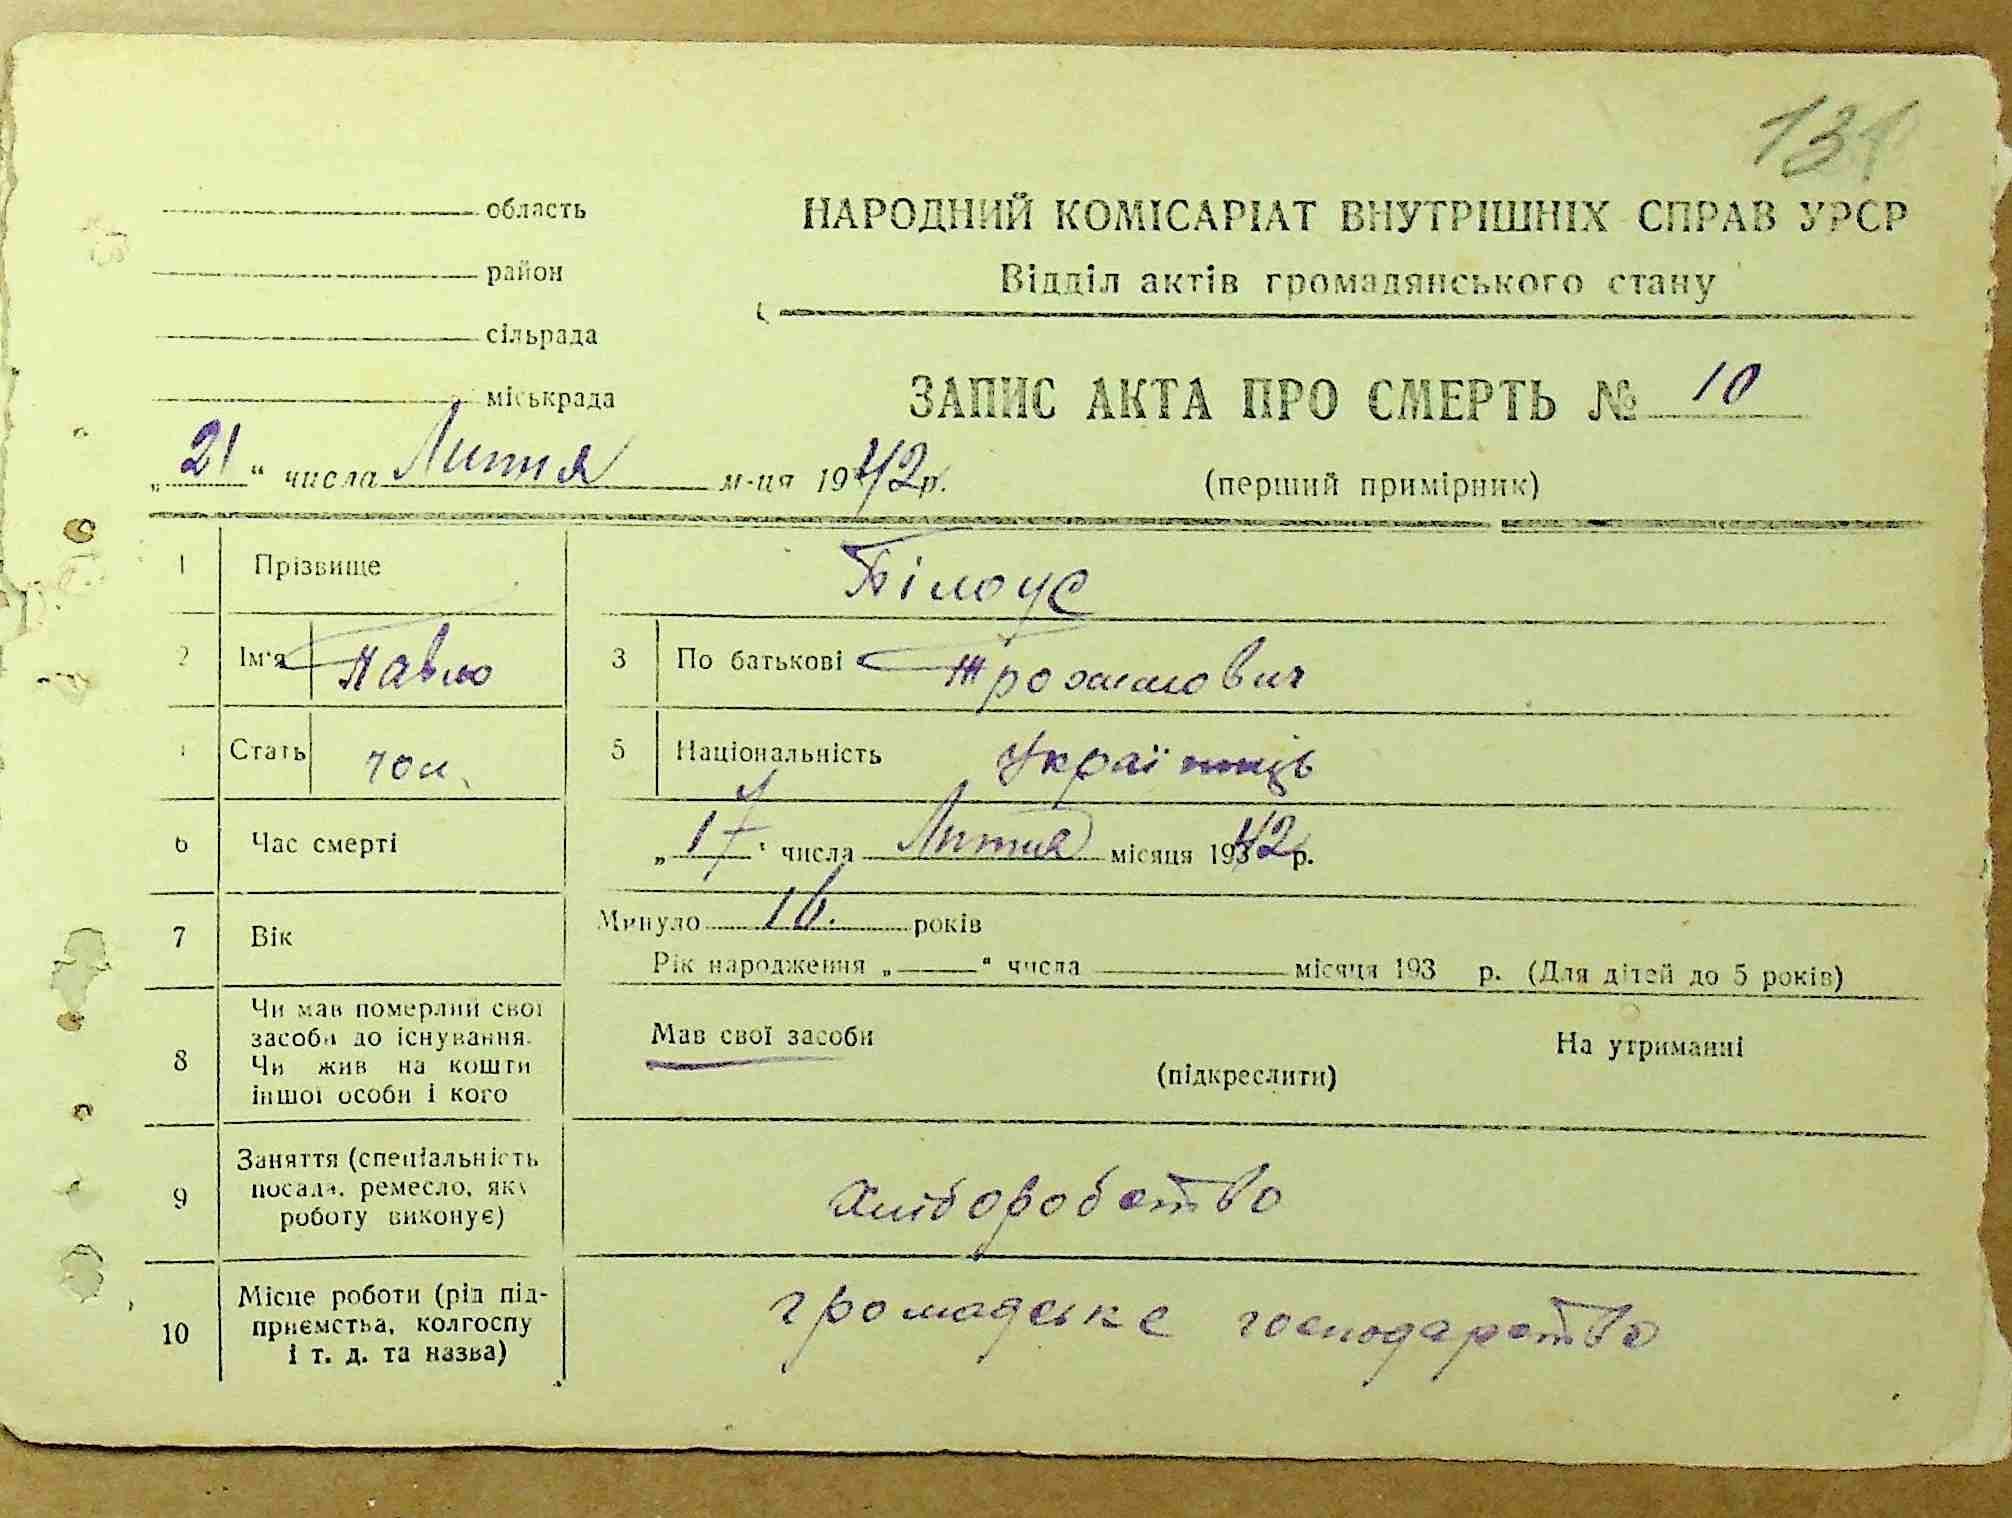 131
область
НАРОДНИЙ КОМІСАРІАТ ВНУТРІШНІХ СПРАВ УРСР
район
Відділ актів громадянського стану
сільрада
міськрада
ЗАПИС АКТА ПРО СМЕРТЬ № 10
„21“ числа Липня м-ця 1942 р.
(перший примірник)
1 Прізвище Білоус
2 Ім'я Павло 3 По батькові Трохимович
Стать чол. 5 Національність Українець
6 Час смерті „17“ числа Липня місяця 1942 р.
7 Вік Минуло 16. років
Рік народження „ “ числа місяця 193 р. (Для дітей до 5 років)
8 Чи мав померлий свої засоби до існування. Чи жив на кошти іншої особи і кого
Мав свої засоби На утриманні
(підкреслити)
9 Заняття (спеціальність посада, ремесло, яку роботу виконує) Хліборобство
10 Місце роботи (рід підприємства, колгоспу і т. д. та назва) громадське господарство